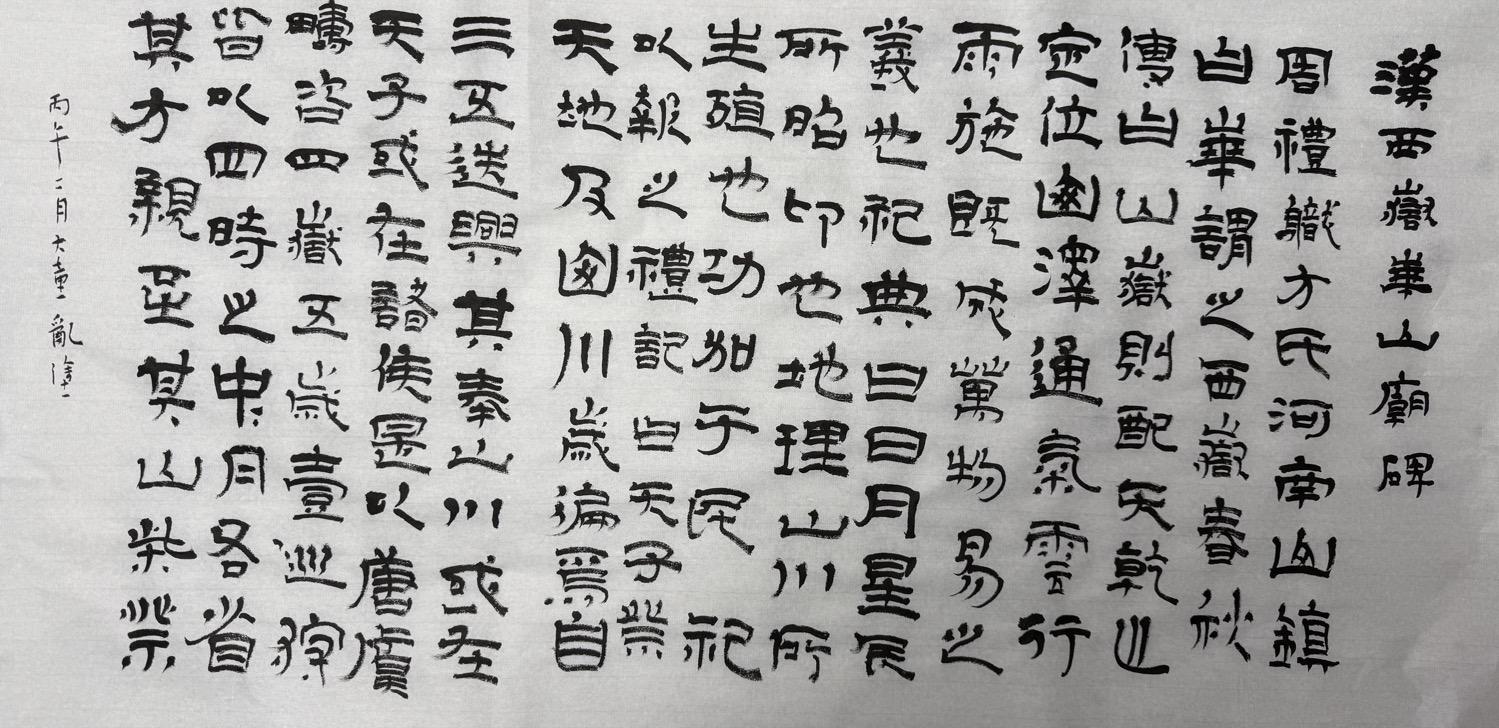 漢西嶽華山廟碑
周禮職方氏河南山鎮
曰華謂之西嶽春秋
傳曰山嶽則配天乾巛
定位山澤通氣雲行
雨施既成萬物易之
義也祀典曰日月星辰
所昭卬也地理山川所
生殖也功加于民祀
以報之禮記曰天子祭
天地及山川歲遍焉自
三五迭興其奉山川或在
天子或在諸侯是以唐虞
疇咨四嶽五歲壹巡狩
皆以四時之中月各省
其方親至其山柴祭
丙午二月大童亂塗